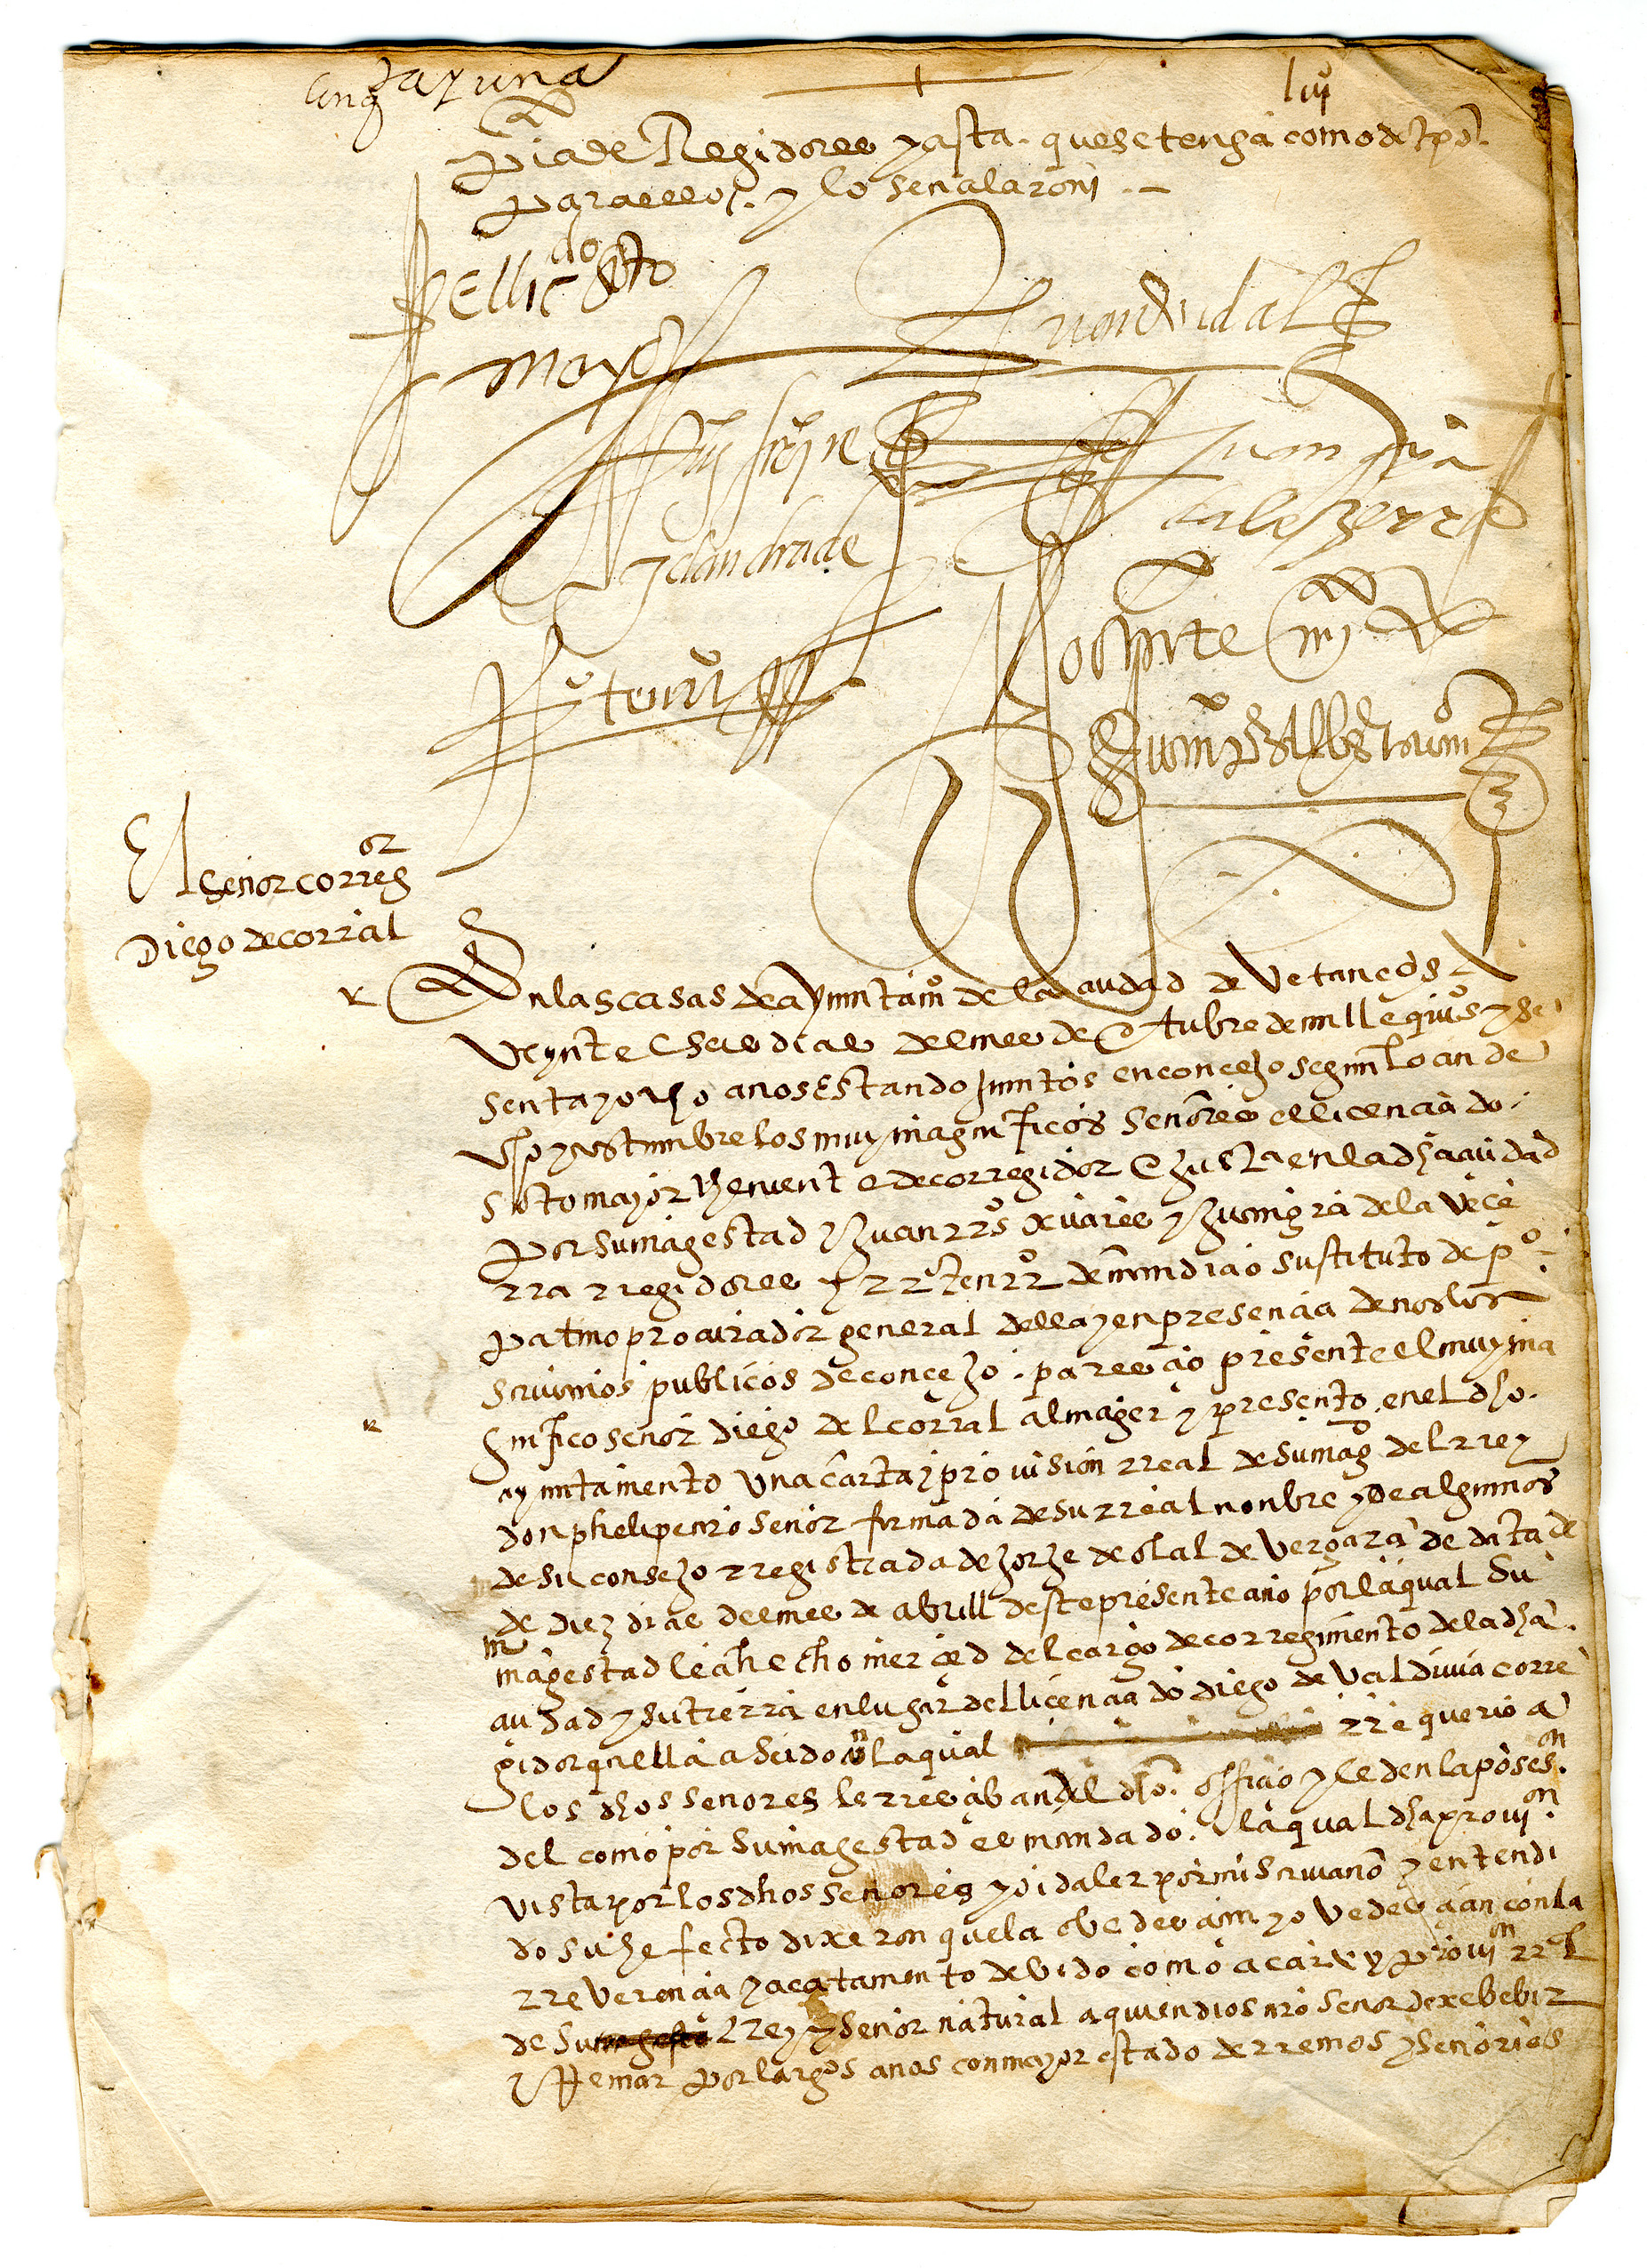 çinq.ta y una
lvj
çia de Regidores y asta que se tenga como de tpo.
para ellos. y lo señalaron
El liç.do Soto
mayor
Juan vidal
Ruy freyre
de andrade
Juan gra
Juan
El señor correg.or
Diego de corral
En las casas de ayuntam.o de la ciudad de vetanços a
veynte e seis dias del mes de otubre de mill e qui.os y se
senta y ocho anos estando juntos en conçejo segun lo an de
uso y costumbre los muy magnificos señores el licenciado
sotomayor theniente de corregidor e just.a en la dha ciudad
por su magestad y Juan rr.os xuares y Juan g.ra de la veçe
rra rregidores y rr.o tenrr.o de mondiao sustituto de p.o
patino procurador general della y en presencia de nos los
scriuanos publicos de conçejo. paresçio presente el muy ma
gnifico señor diego del corral almager y presento en el dho.
ayuntamento una carta y prouision rreal de su mag.d del rrey
don phelipe nro señor firmada de su rreal nonbre y de algunos
de su consejo rregistrada de Jorje de olal de vergara de data de
de diez dias del mes de abrill deste presente año por la qual su
magestad le a hecho merçed del cargo de corregimento de la dha.
ciudad y su tierra en lugar del licenciado diego de valdiuia corre
gidor quella a seido con la qual rrequerio a
los dhos señores le rresçiban al dho. officio y le den la poses.on
del como por su magestad es mandado. la qual dha proui.on
vista por los dhos señores y oida ler por mi scriuano y entendi
do su hefecto dixeron quela obedesçian y ovedesçian con la
rreverencia y acatamento devido como a carta y proui.on rr.l
de su rrey y señor natural a quien dios nro señor dexe bebir
y rreinar por largos anos con mayor estado de rreinos y señorios